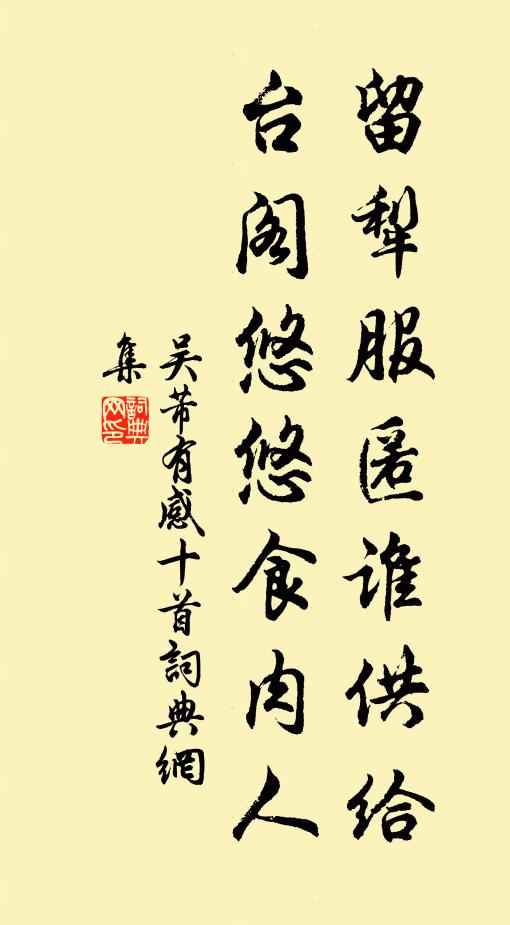 留犁服匿谁供给
台阁悠悠食肉人
吴芾有感十首詞典網
集
詞典網印